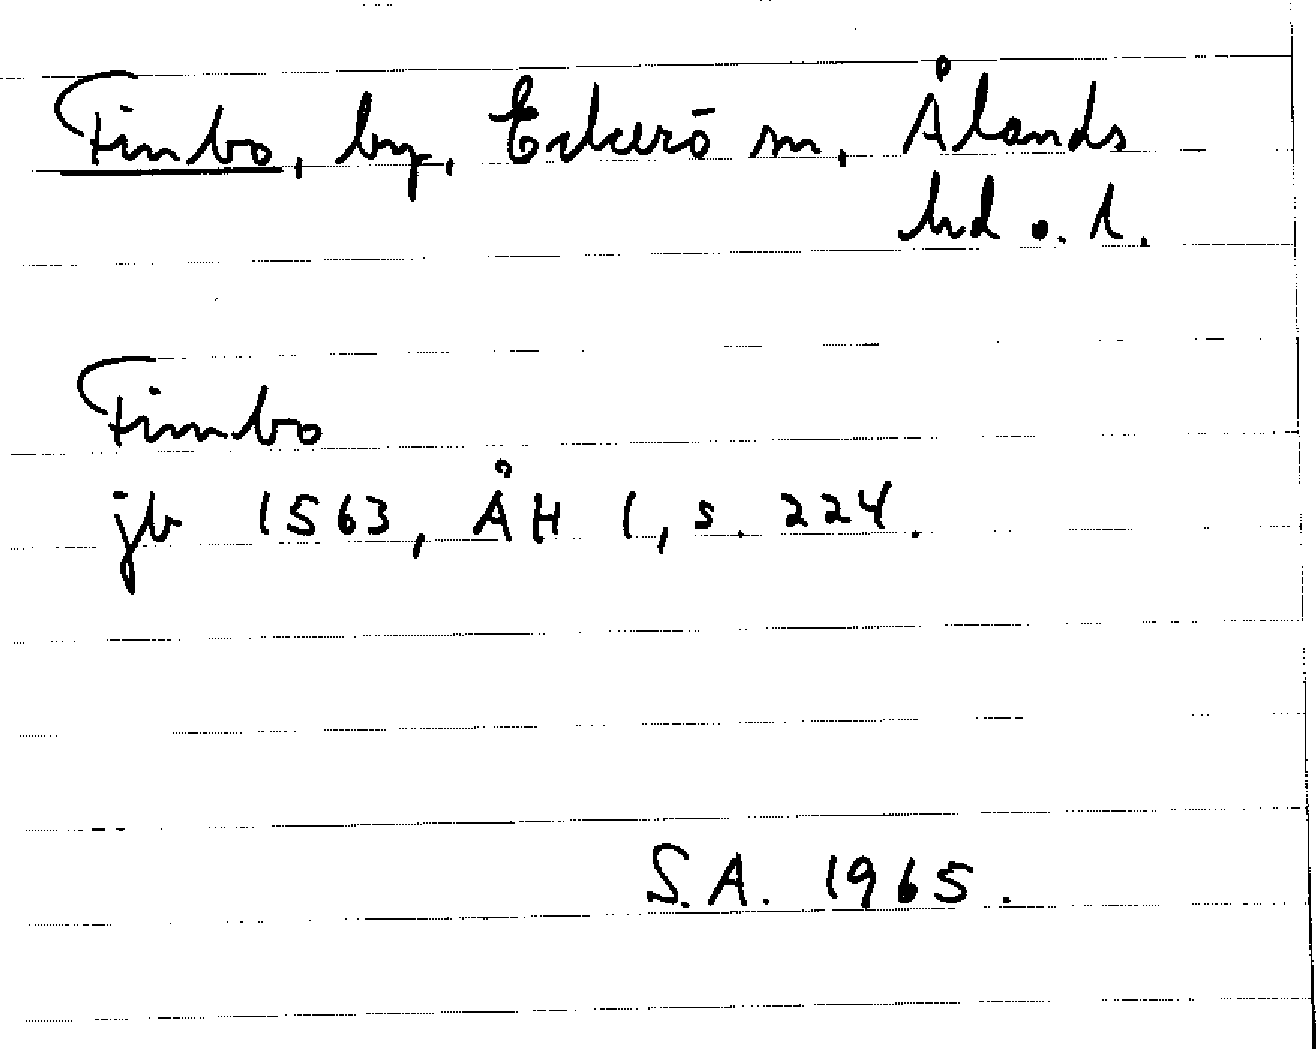 Finbo, by, Eckerö sn, Ålands
hd o. l.
Fimbo
jb 1563, ÅH 1, s. 224.
S.A. 1965.